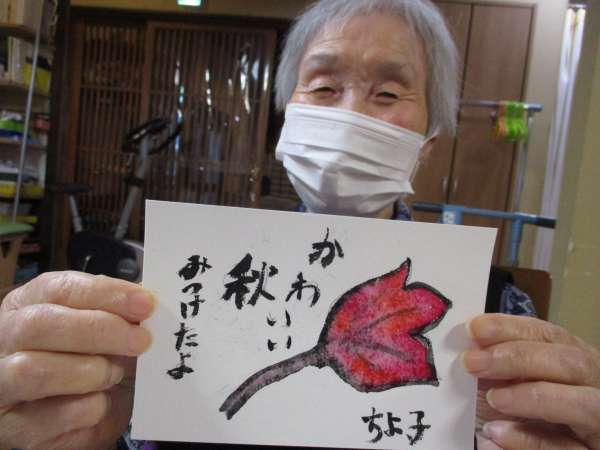 かわいい
秋
みつけたよ
ちよ子